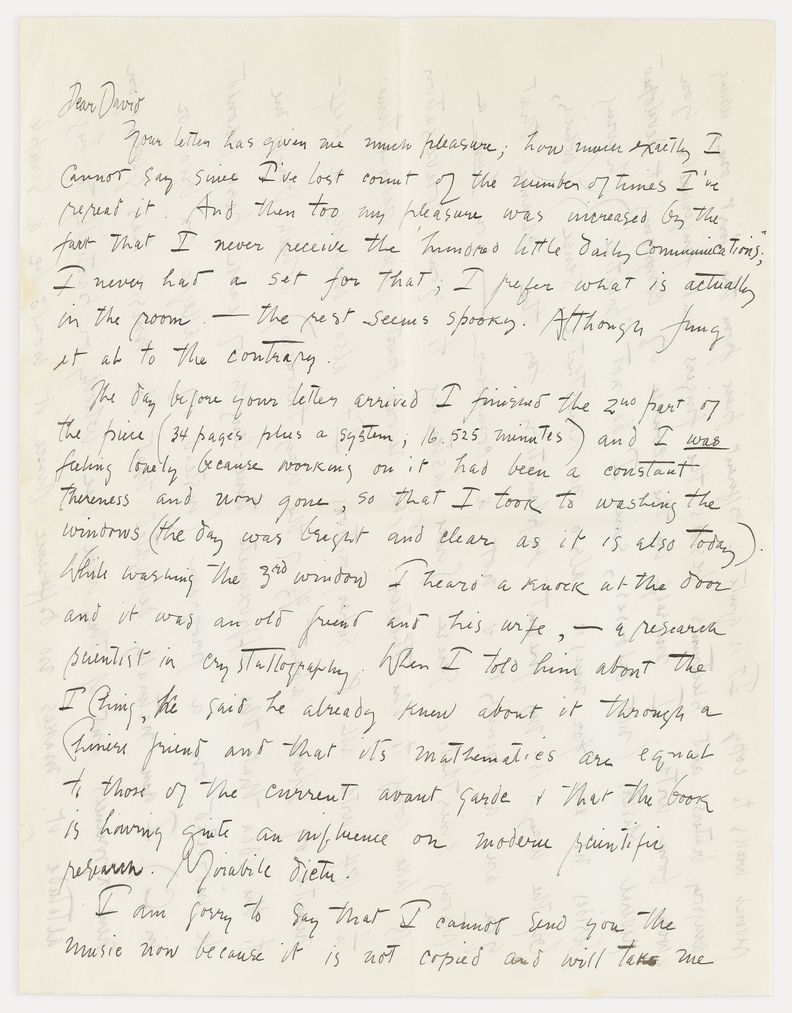 Dear David
Your letter has given me much pleasure; how much exactly I
cannot say since I've lost count of the number of times I've
reread it. And then too my pleasure was increased by the
fact that I never receive the 'hundred little daily communications';
I never had a set for that; I prefer what is actually
in the room. — the rest seems spooky. Although Jung
et al to the contrary.
The day before your letter arrived I finished the 2nd part of
the piece (34 pages plus a system; 16.525 minutes) and I was
feeling lonely because working on it had been a constant
thereness and now gone, so that I took to washing the
windows (the day was bright and clear as it is also today).
While washing the 3rd window I heard a knock at the door
and it was an old friend and his wife, — a research
scientist in crystallography. When I told him about the
I Ching, he said he already knew about it through a
Chinese friend and that its mathematics are equal
to those of the current avant garde & that the book
is having quite an influence on modern scientific
research. Mirabile dictu.
I am sorry to say that I cannot send you the
music now because it is not copied and will take me